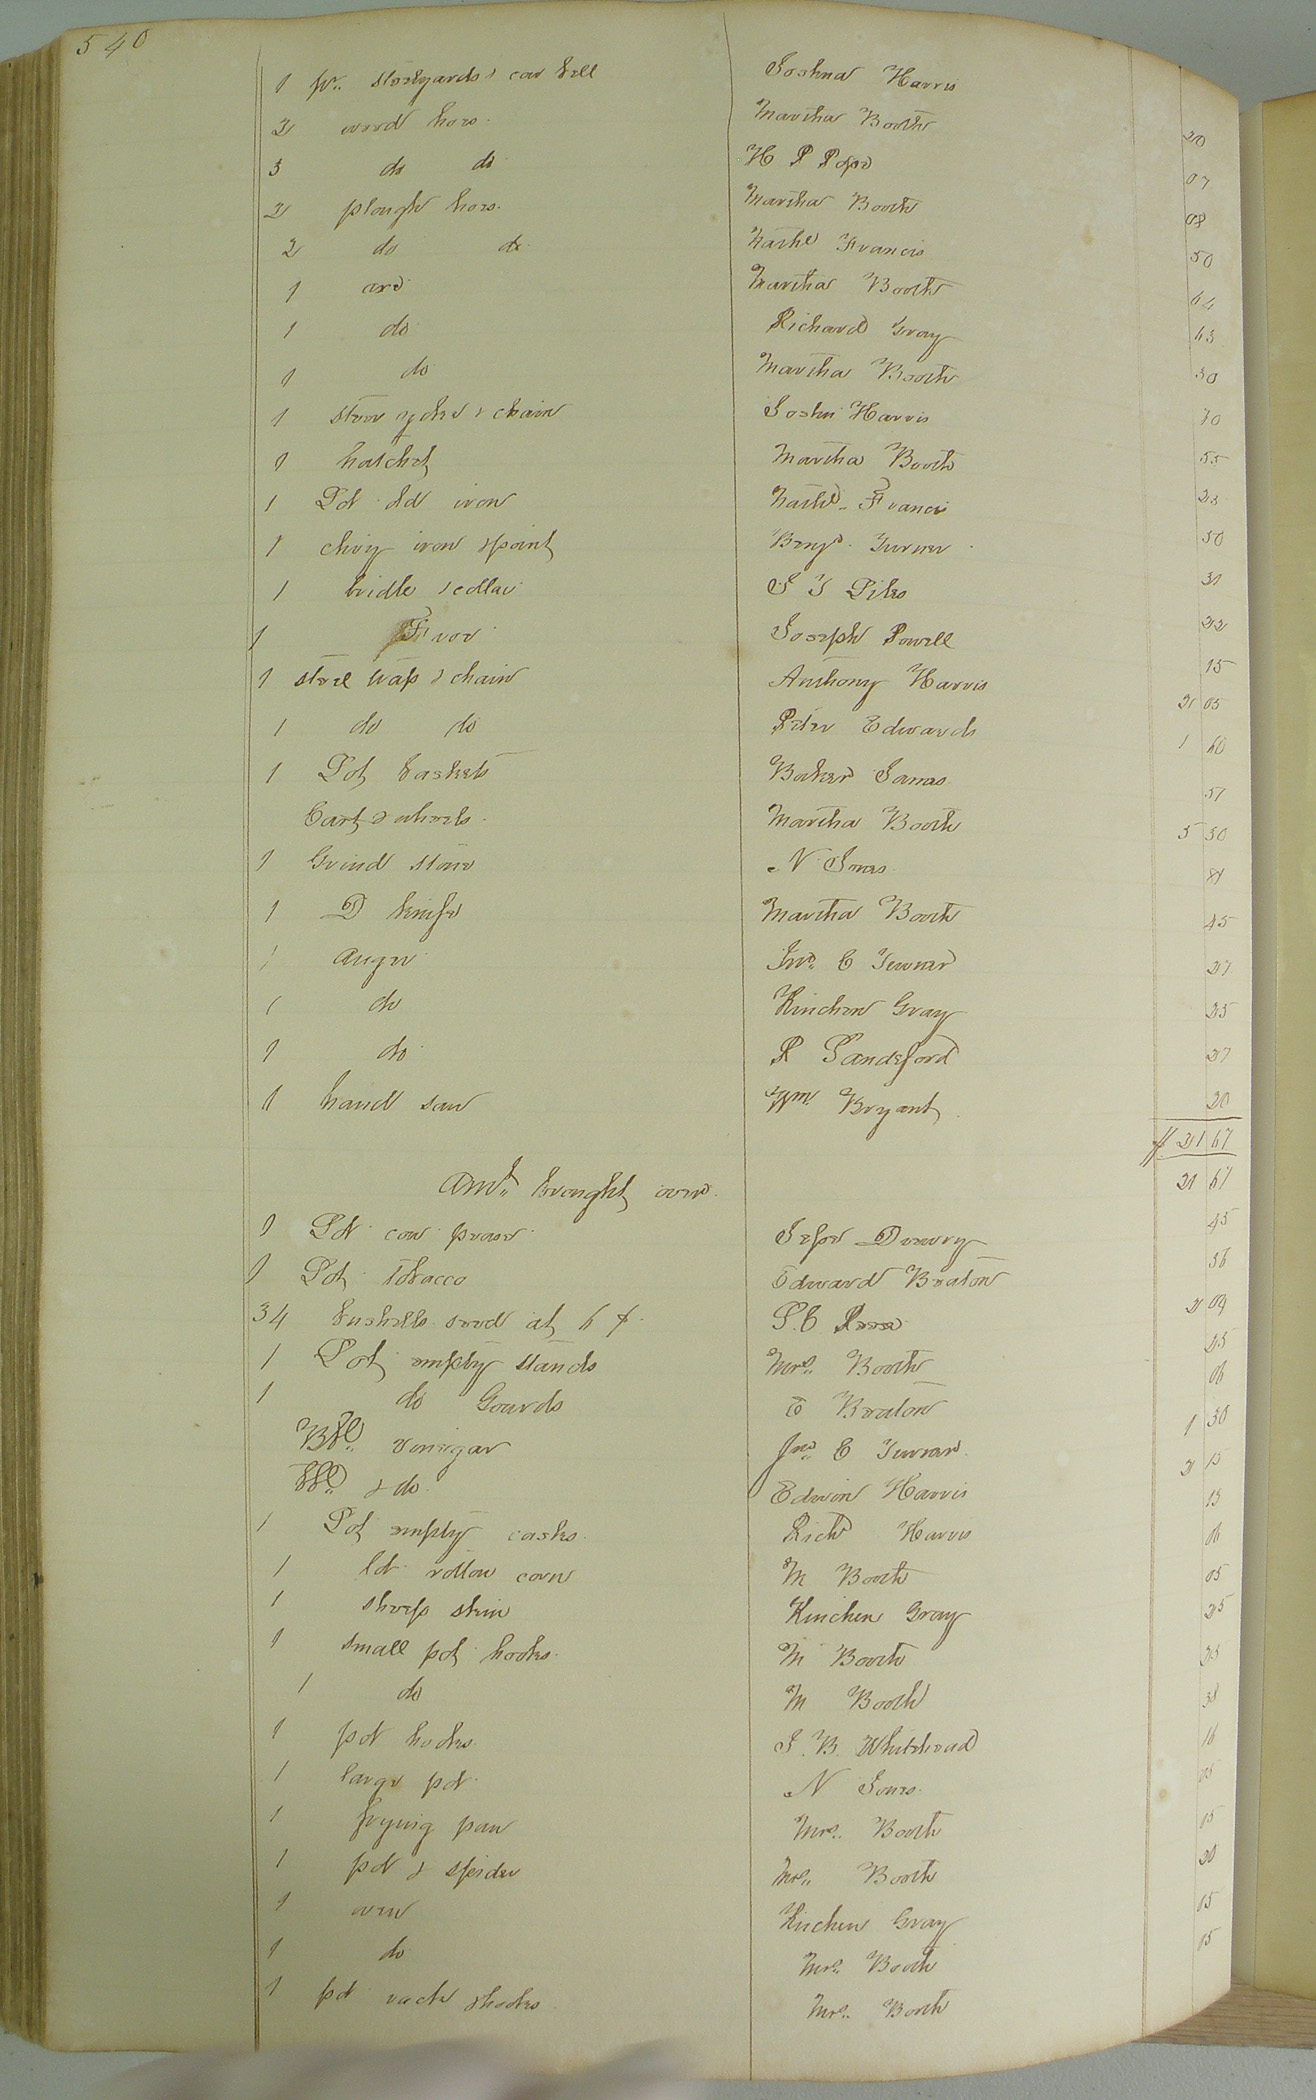 540
1 pr. steelyards & cow bell Joshua Harris
2 weed hoes Martha Booth 20
3 do do H P Pope 07
2 plough hoes Martha Booth 08
2 do do Nathl Francis 50
1 axe Martha Booth
1 do Richard Gray
1 do Martha Booth 50
1 steer yoke & chain Joshu Harris 70
1 hatchet Martha Booth 55
1 Lot old iron Nathl Francis 25
1 iron & point Benjn Turner 50
1 bridle & collar S J Piles 31
1 Froe Joseph Powell 22
1 steel trap & chain Anthony Harris 15
1 do do Peter Edwards 2 05
1 Lot baskets Baker James 1 60
Cart & wheels Martha Booth 51
1 Grind stone N Jones 5 50
1 D knife Martha Booth
1 Auger Jno C Turner 45
1 do Kinchen Gray 27
1 do R Sandeford 25
1 hand saw Wm Bryant 27
20
21 67
Amt brought over 21 67
1 Lot cow pease Jesse Drewry 45
1 Lot Tobacco Edward Beaton 56
34 bushells seed at 6 ¢ S C Reese 2 04
1 Lot empty stands Mrs Booth 25
1 do Gourds E Beaton 06
Bbl vinegar Jno C Turner 1 50
Bbl & do Edwin Harris 2 15
1 Lot empty casks Richd Harris 15
1 lot rotton corn M Booth 06
1 sheep skin Kinchen Gray 05
1 small pot hooks M Booth 25
1 do M Booth 25
1 pot hooks J B Whitehead 38
1 large pot N Jones 16
1 frying pan Mrs Booth 05
1 pot & spider Mrs Booth 05
1 oven Kinchen Gray 20
1 do Mrs Booth 05
1 pot rack & hooks Mrs Booth 05